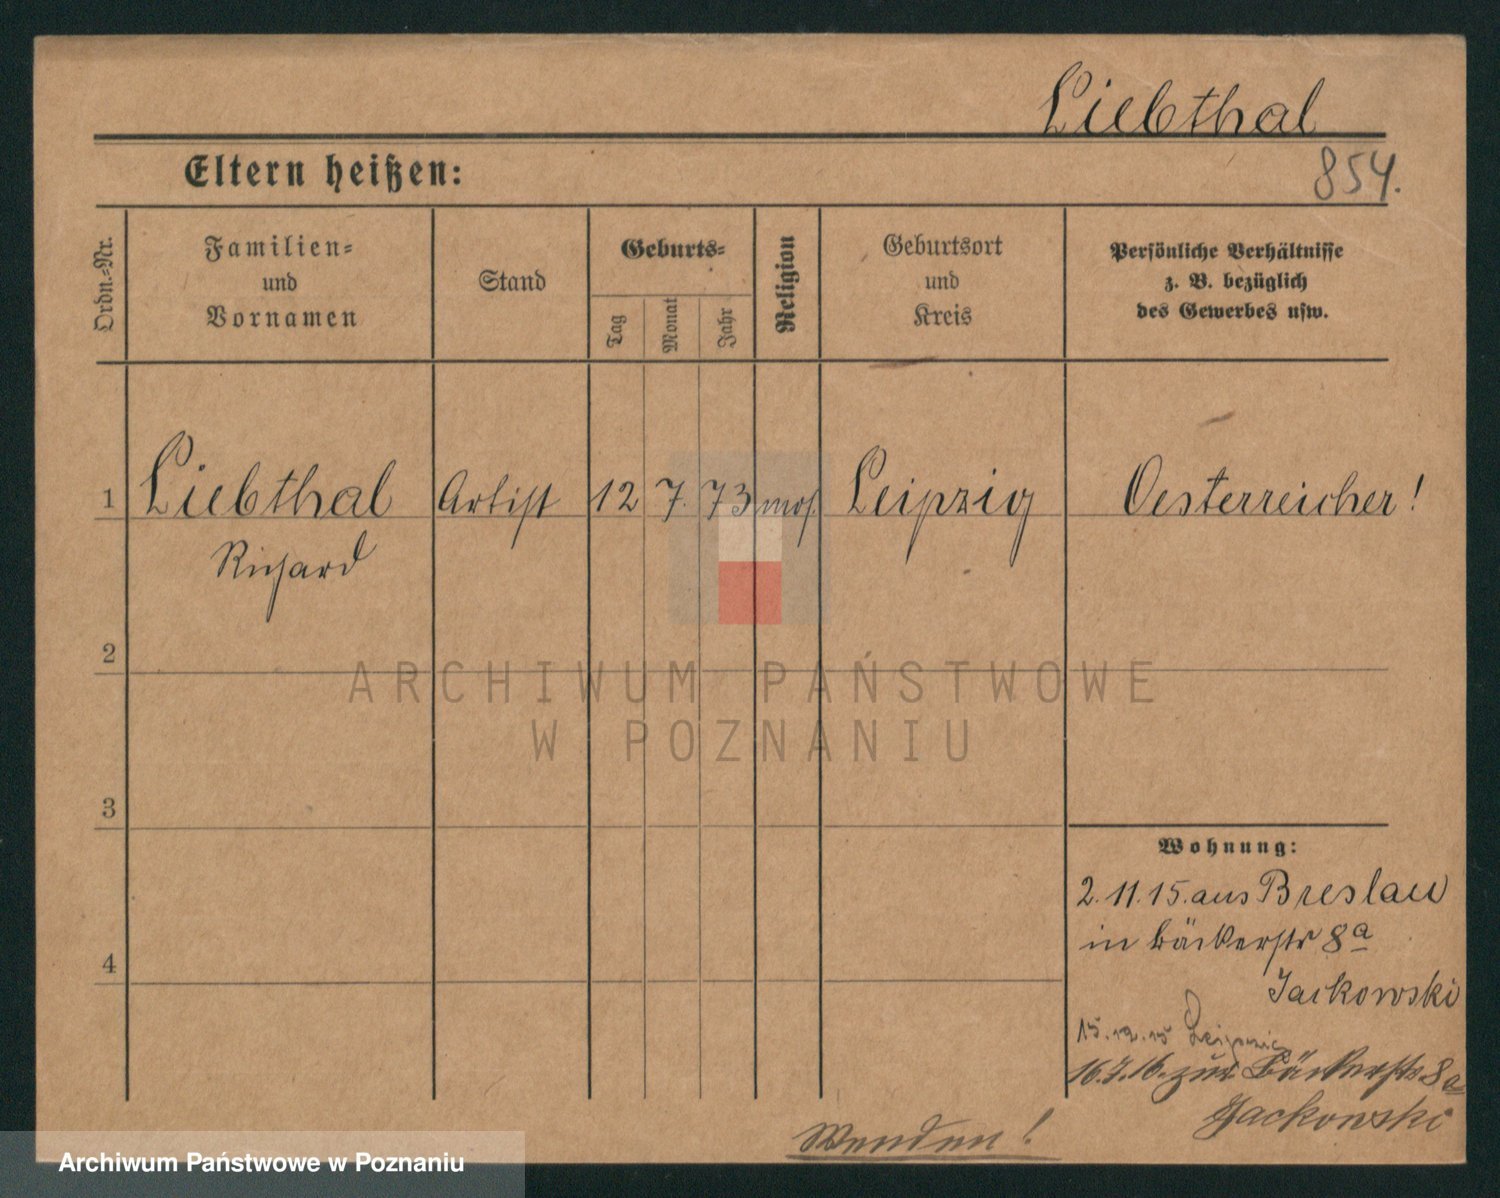 Liebthal
Eltern heißen:
854.
Ordn.-Nr.
Familien-
und
Vornamen
Stand
Geburts-
Tag
Monat
Jahr
Religion
Geburtsort
und
Kreis
Persönliche Verhältnisse
z. B. bezüglich
des Gewerbes usw.
1 Liebthal Artist 12 7. 73 mos. Leipzig Oesterreicher!
Richard
2
ARCHIWUM PAŃSTWOWE
W POZNANIU
3
Wohnung:
2.11.15. aus Breslau
in Bäckerstr 8a
4
Jackowski
15.12.15 Leipzig
16.7.16. zur Bäckerstr 8a
Jackowski
Wenden!
Archiwum Państwowe w Poznaniu